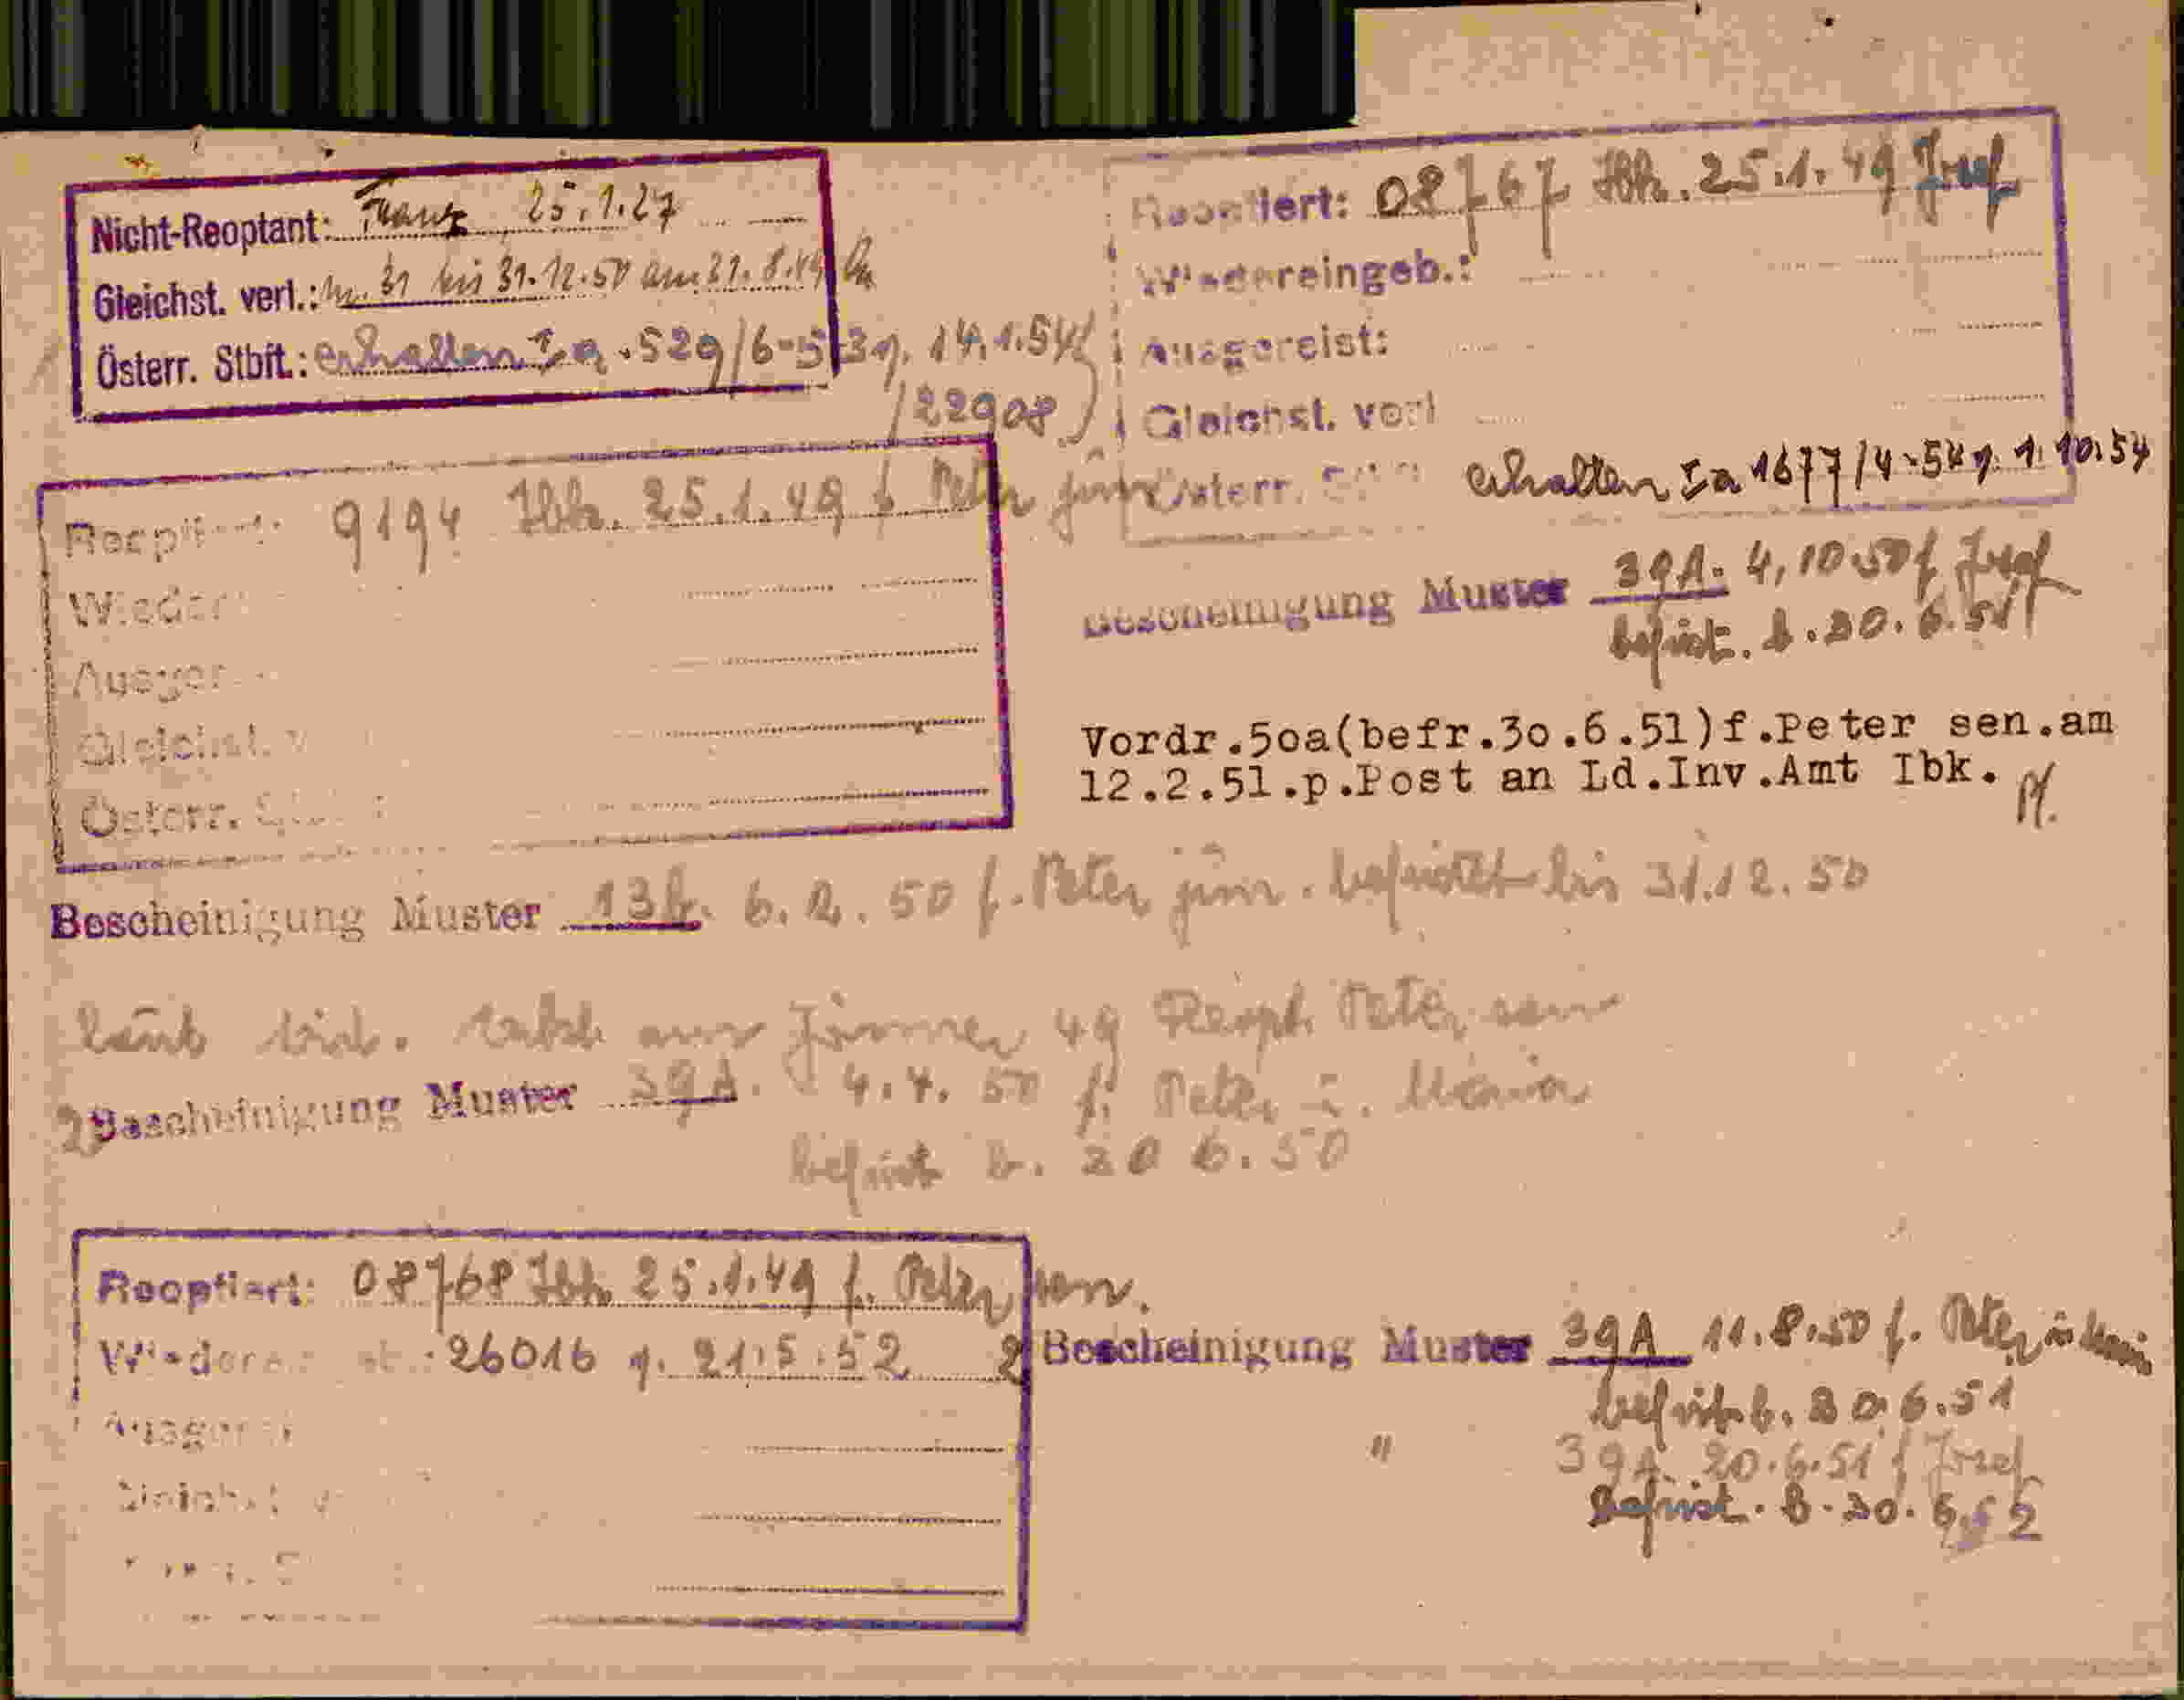 Nicht-Reoptant: Franz 25.1.27
Gleichst. verl.: 31 bis 31.12.50 am 31.8.49
Österr. Stbft.: erhalten Ia.529/6-53 v. 14.1.54
(22908)
Reoptiert: 08767 Ibk. 25.1.49 Josef
Wiedereingeb.:
Ausgereist:
Gleichst. verl
Österr. erhalten Ia 1677/4-54 v. 1.10.54
Bescheinigung Muster 39A. 4.10.50 f. Josef
befrist. b. 30.6.51
Reoptiert: 9194 Ibk. 25.1.49 f. Peter jun
Wieder
Ausger
Gleichst. v
Österr. St
Vordr.50a(befr.30.6.51)f.Peter sen.am
12.2.51.p.Post an Ld.Inv.Amt Ibk.
Bescheinigung Muster 13b. 6.2.50 f. Peter jun. befristet bis 31.12.50
laut aus Jänner 49 Reopt. Peter sen
2) Bescheinigung Muster 39A. 4.4.50 f. Peter u. Maria
befrist b. 30 6.50
Reoptiert: 08768 Ibk 25.1.49 f. Peter sen.
26016 v. 21.5.52
2 Bescheinigung Muster 39A 11.8.50 f. Peter u Maria
befrist. b. 30.6.51
" 39A. 20.6.51 f Josef
Befrist. b. 30.6.52
Ausger
Gleichst v